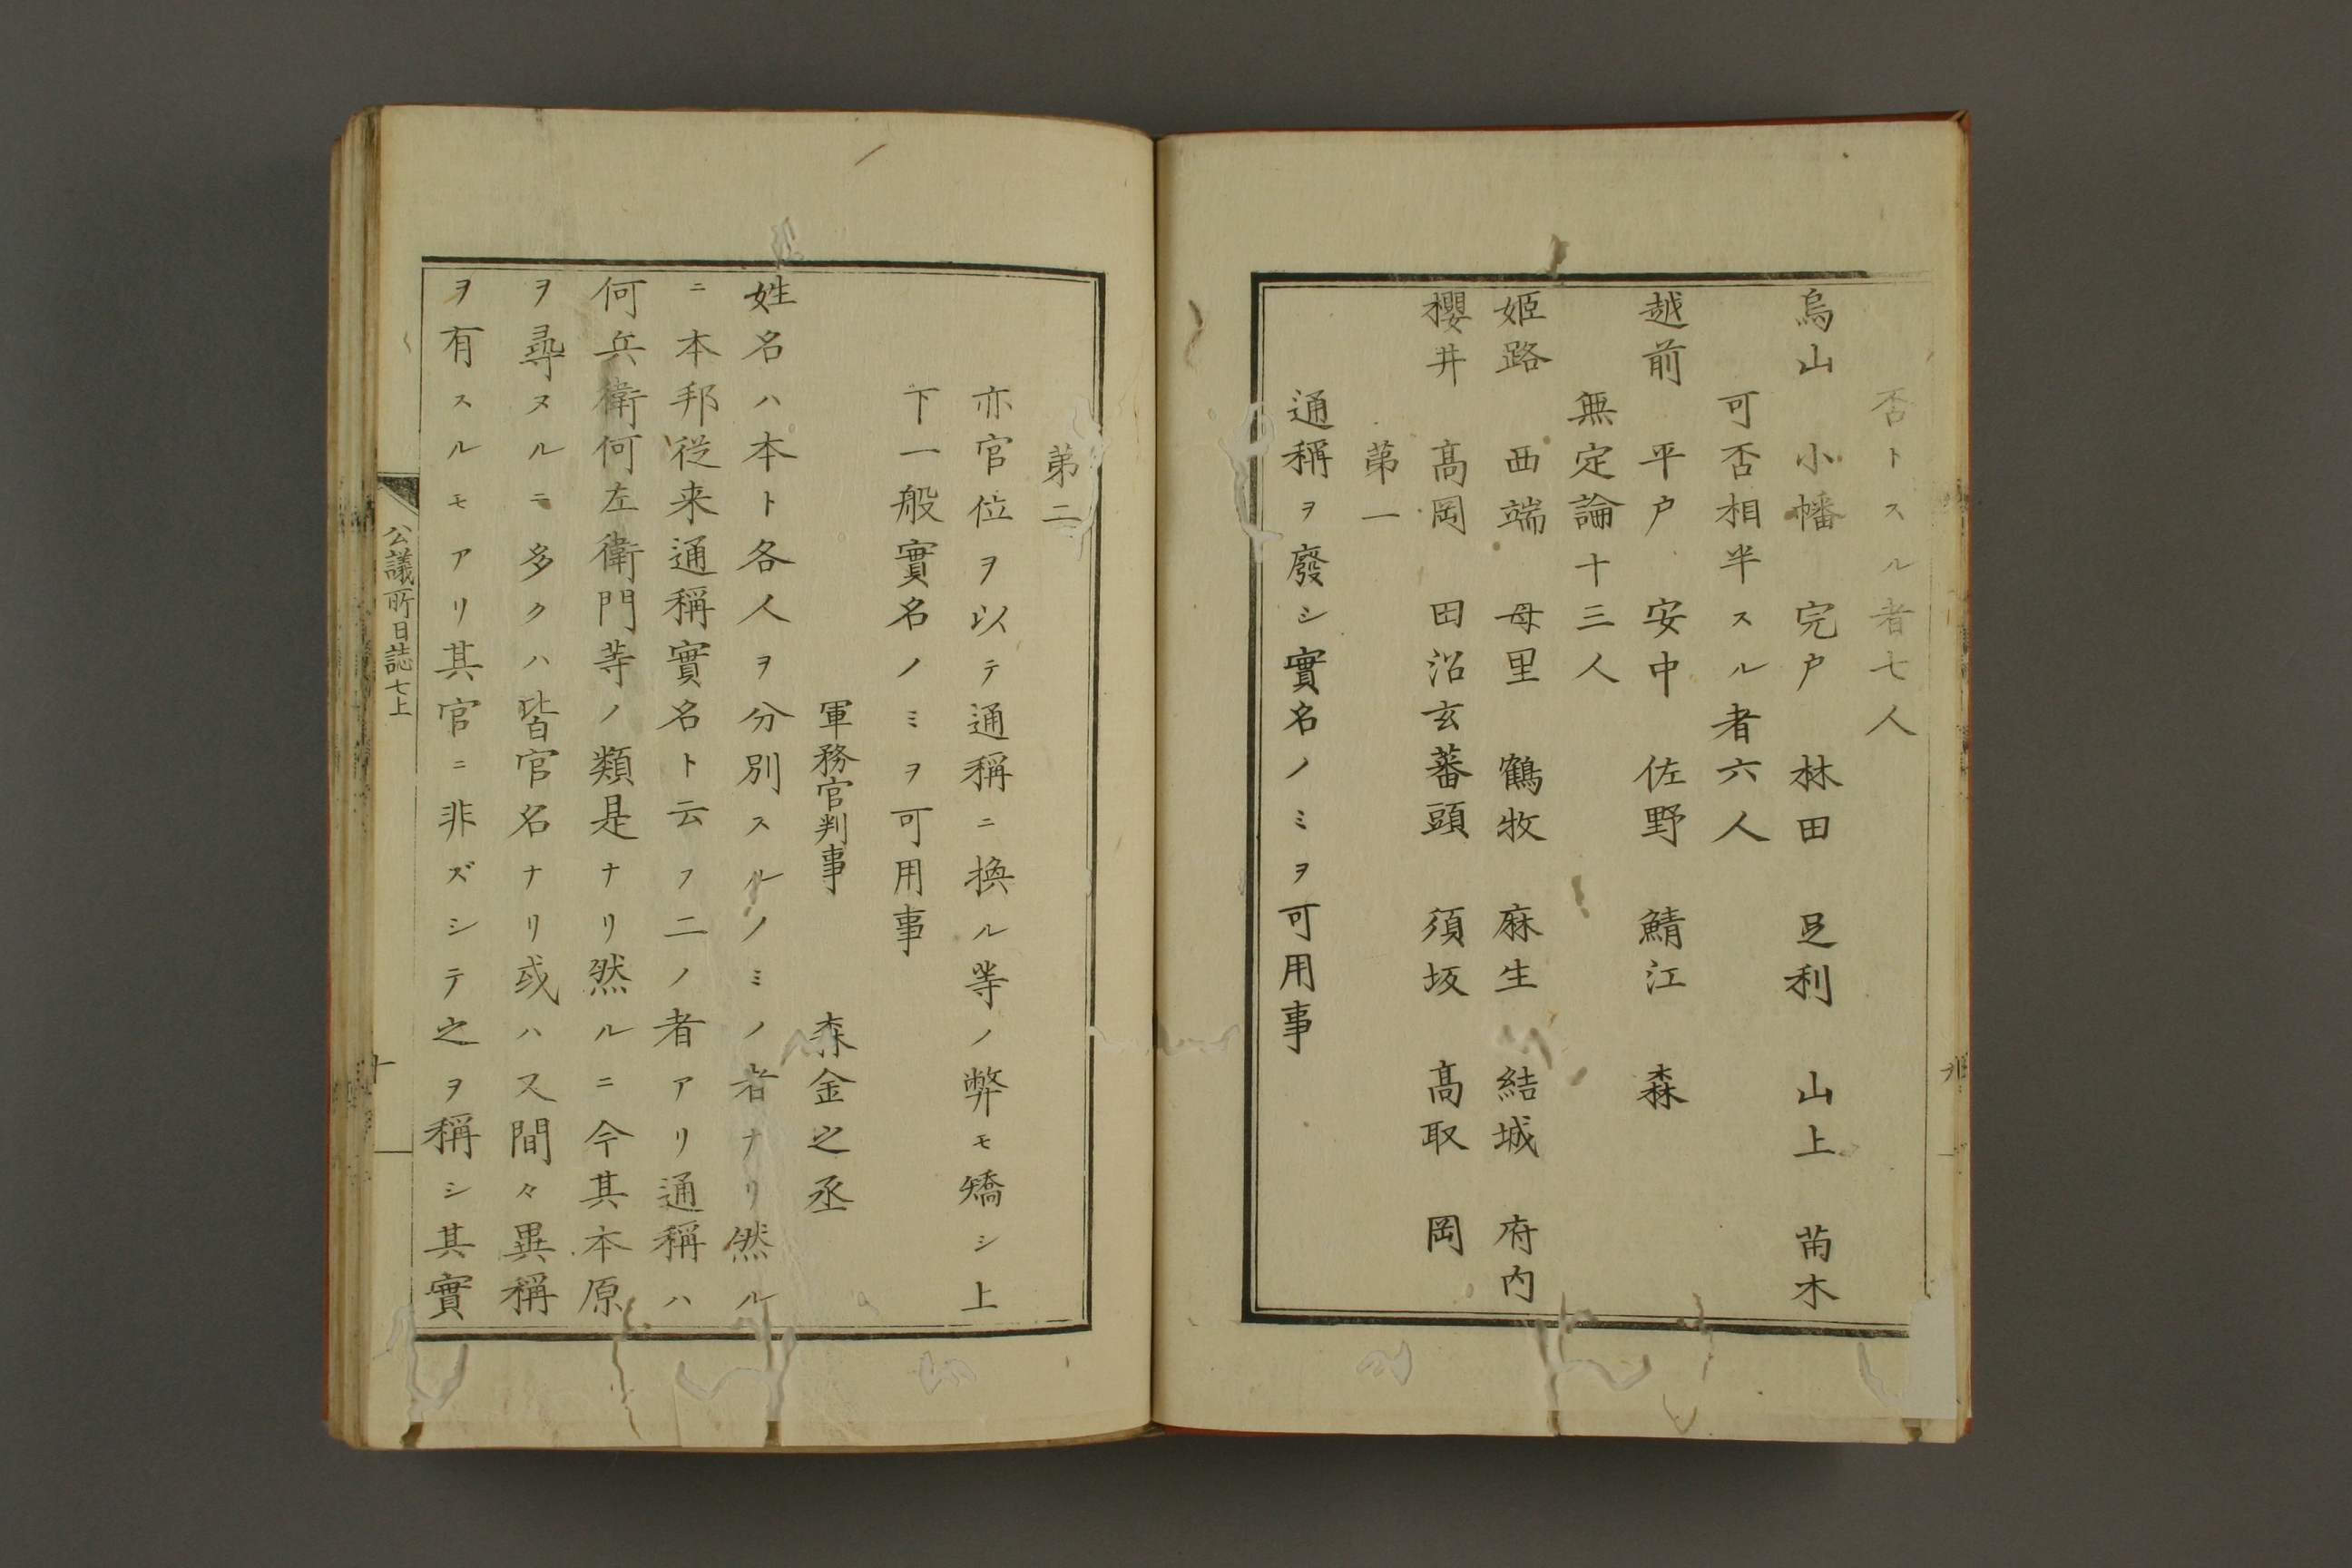 否トスル者七人
烏山　小幡　完戸　林田　足利　山上　苗木
可否相半スル者六人
越前　平戸　安中　佐野　鯖江　森
無定論十三人
姫路　西端　母里　鶴牧　麻生　結城　府内
櫻井　髙岡　田沼玄蕃頭　須坂　髙取　岡
第一
通稱ヲ廢シ實名ノミヲ可用事
第二
亦官位ヲ以テ通稱ニ換ル等ノ弊モ矯シ上
下一般實名ノミヲ可用事
軍務官判事　森金之丞
姓名ハ本ト各人ヲ分別スルノミノ者ナリ然ル
ニ本邦従来通稱實名ト云フ二ノ者アリ通稱ハ
何兵衛何左衛門等ノ類是ナリ然ルニ今其本原
ヲ尋ヌルニ多クハ皆官名ナリ或ハ又間々異稱
ヲ有スルモアリ其官ニ非ズシテ之ヲ稱シ其實
公議所日誌七上
十